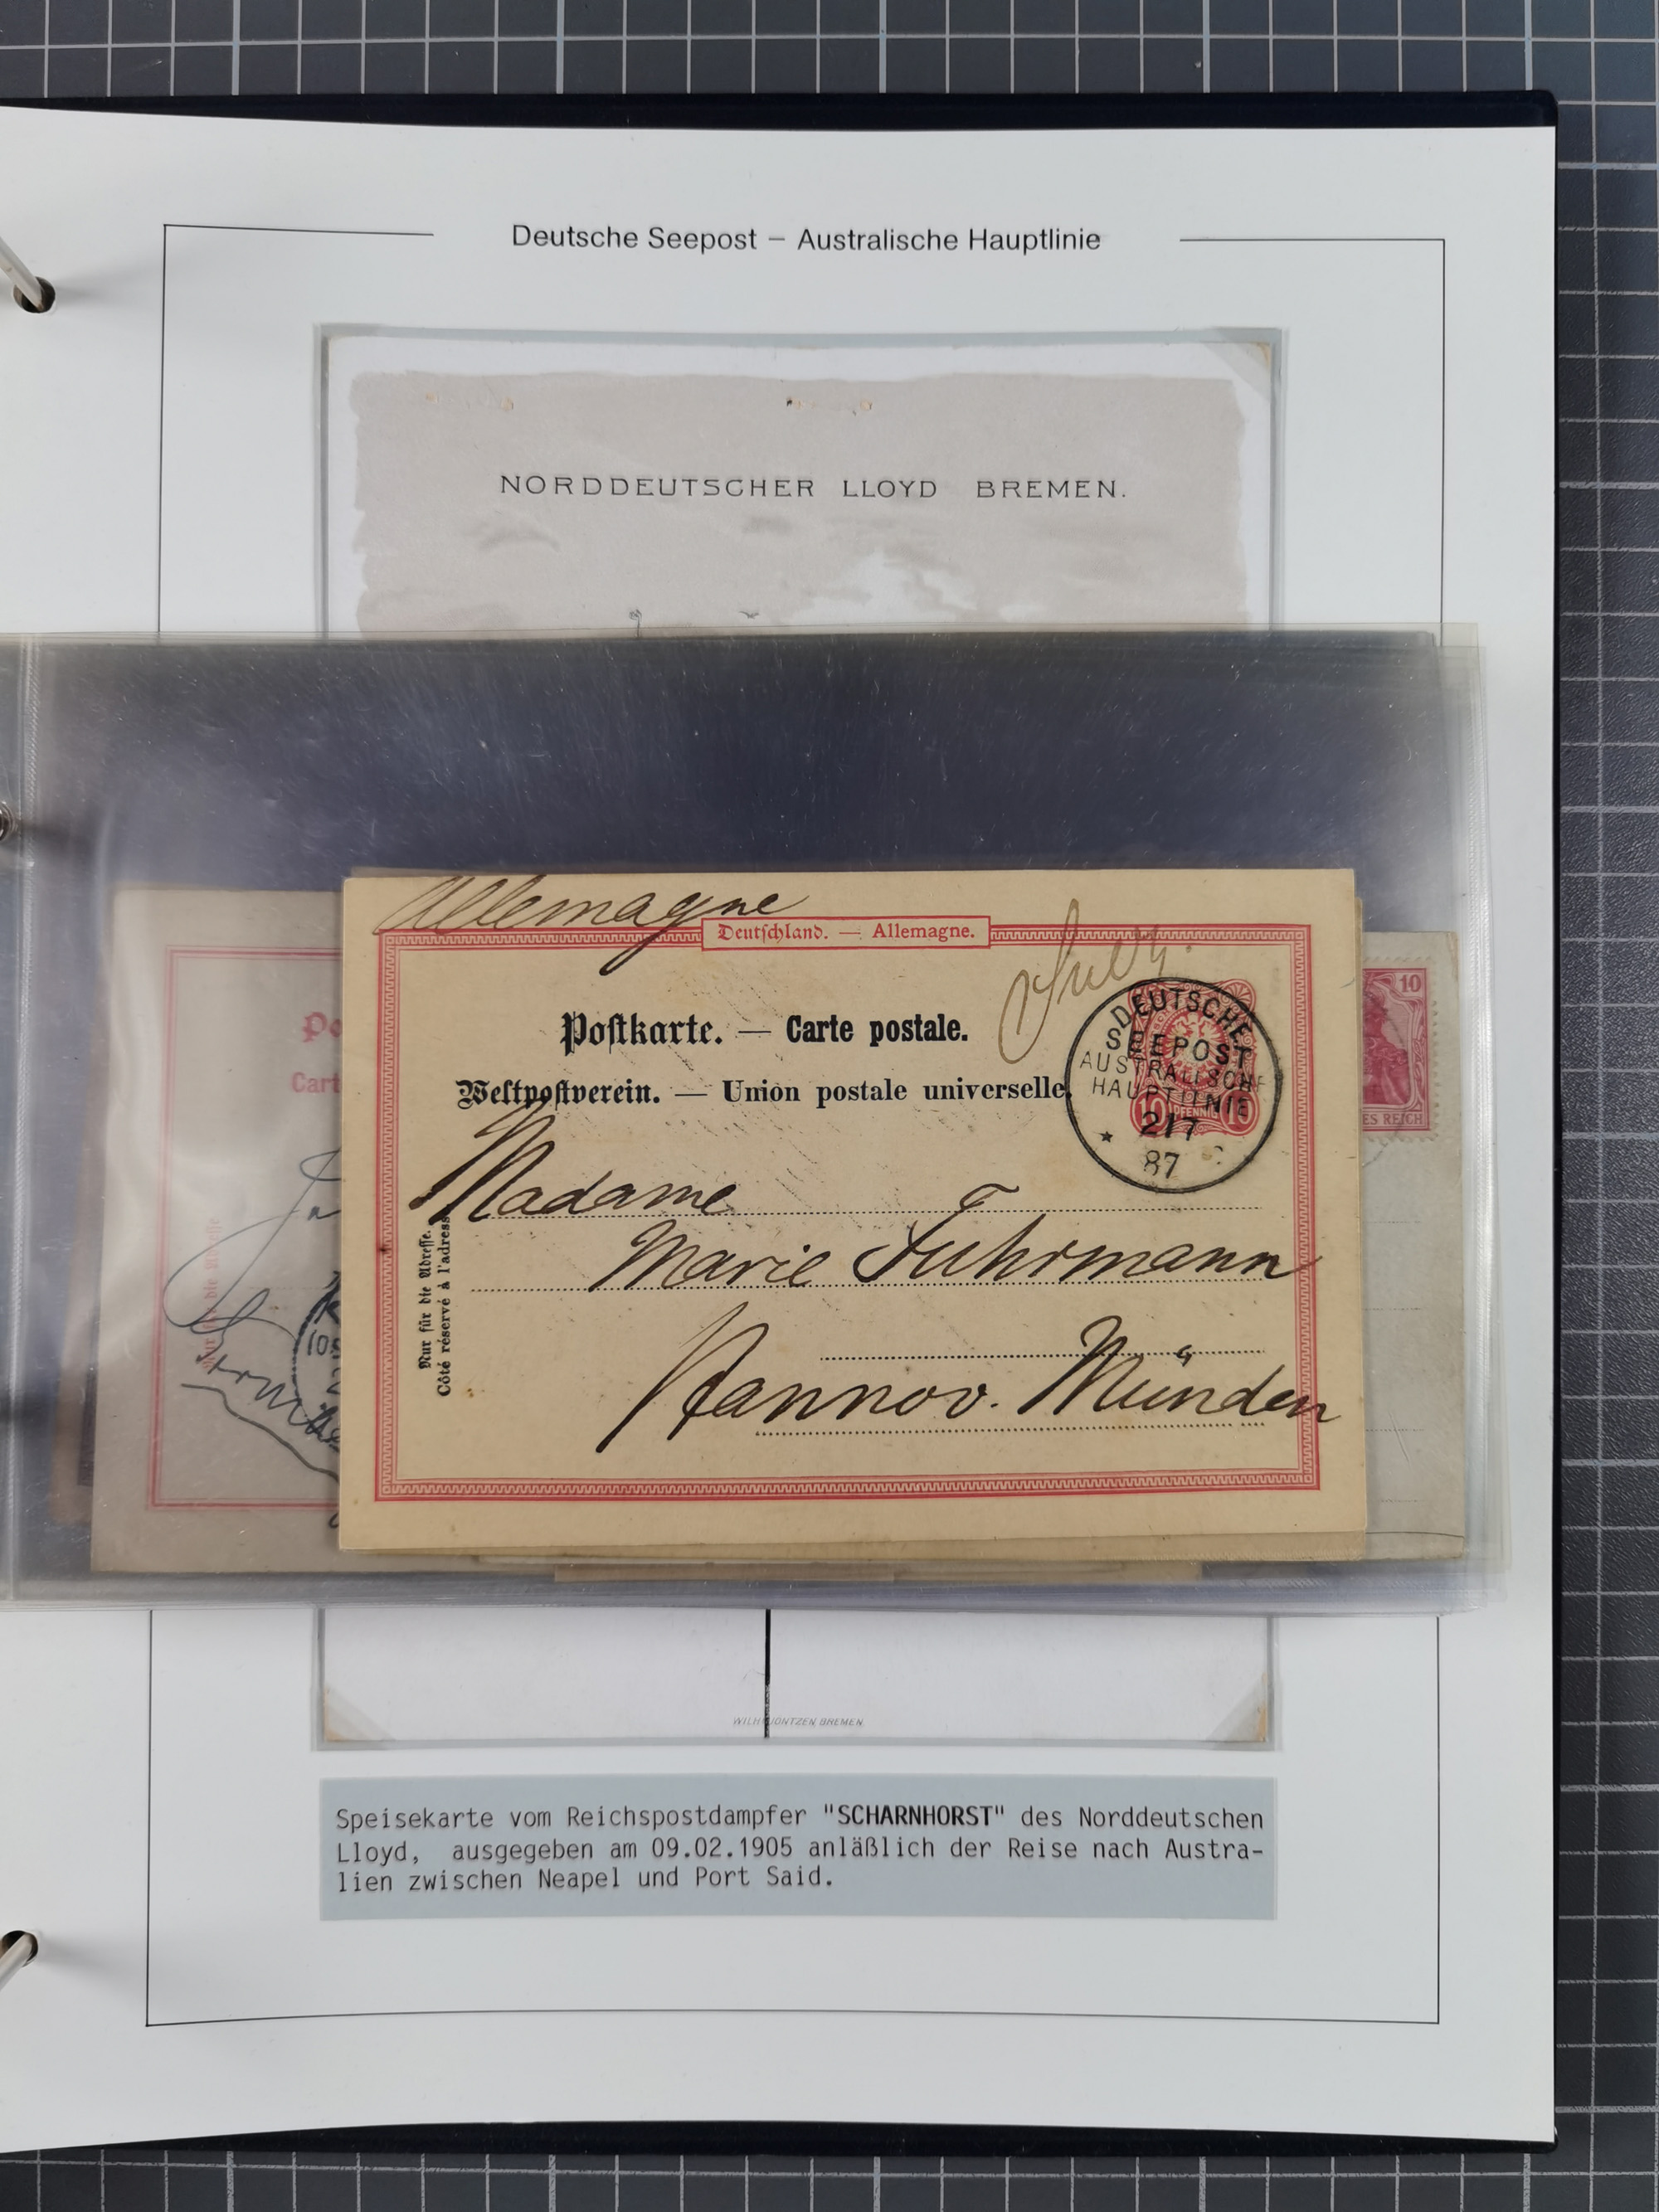 Deutsche Seepost – Australische Hauptlinie
NORDDEUTSCHER LLOYD BREMEN.
Allemagne
Deutschland. — Allemagne.
Postkarte. — Carte postale.
Weltpostverein. — Union postale universelle.
DEUTSCHE
SEEPOST
AUSTRALISCHE
HAUPTLINIE
2/7
87
10 PFENNIG 10
Madame
Marie Fuhrmann
Hannov. Münden
Nur für die Adresse.
Côté réservé à l'adresse
Po
Cart
10
ES REICH
WILH. JÖNTZEN, BREMEN.
Speisekarte vom Reichspostdampfer "SCHARNHORST" des Norddeutschen
Lloyd, ausgegeben am 09.02.1905 anläßlich der Reise nach Austra-
lien zwischen Neapel und Port Said.